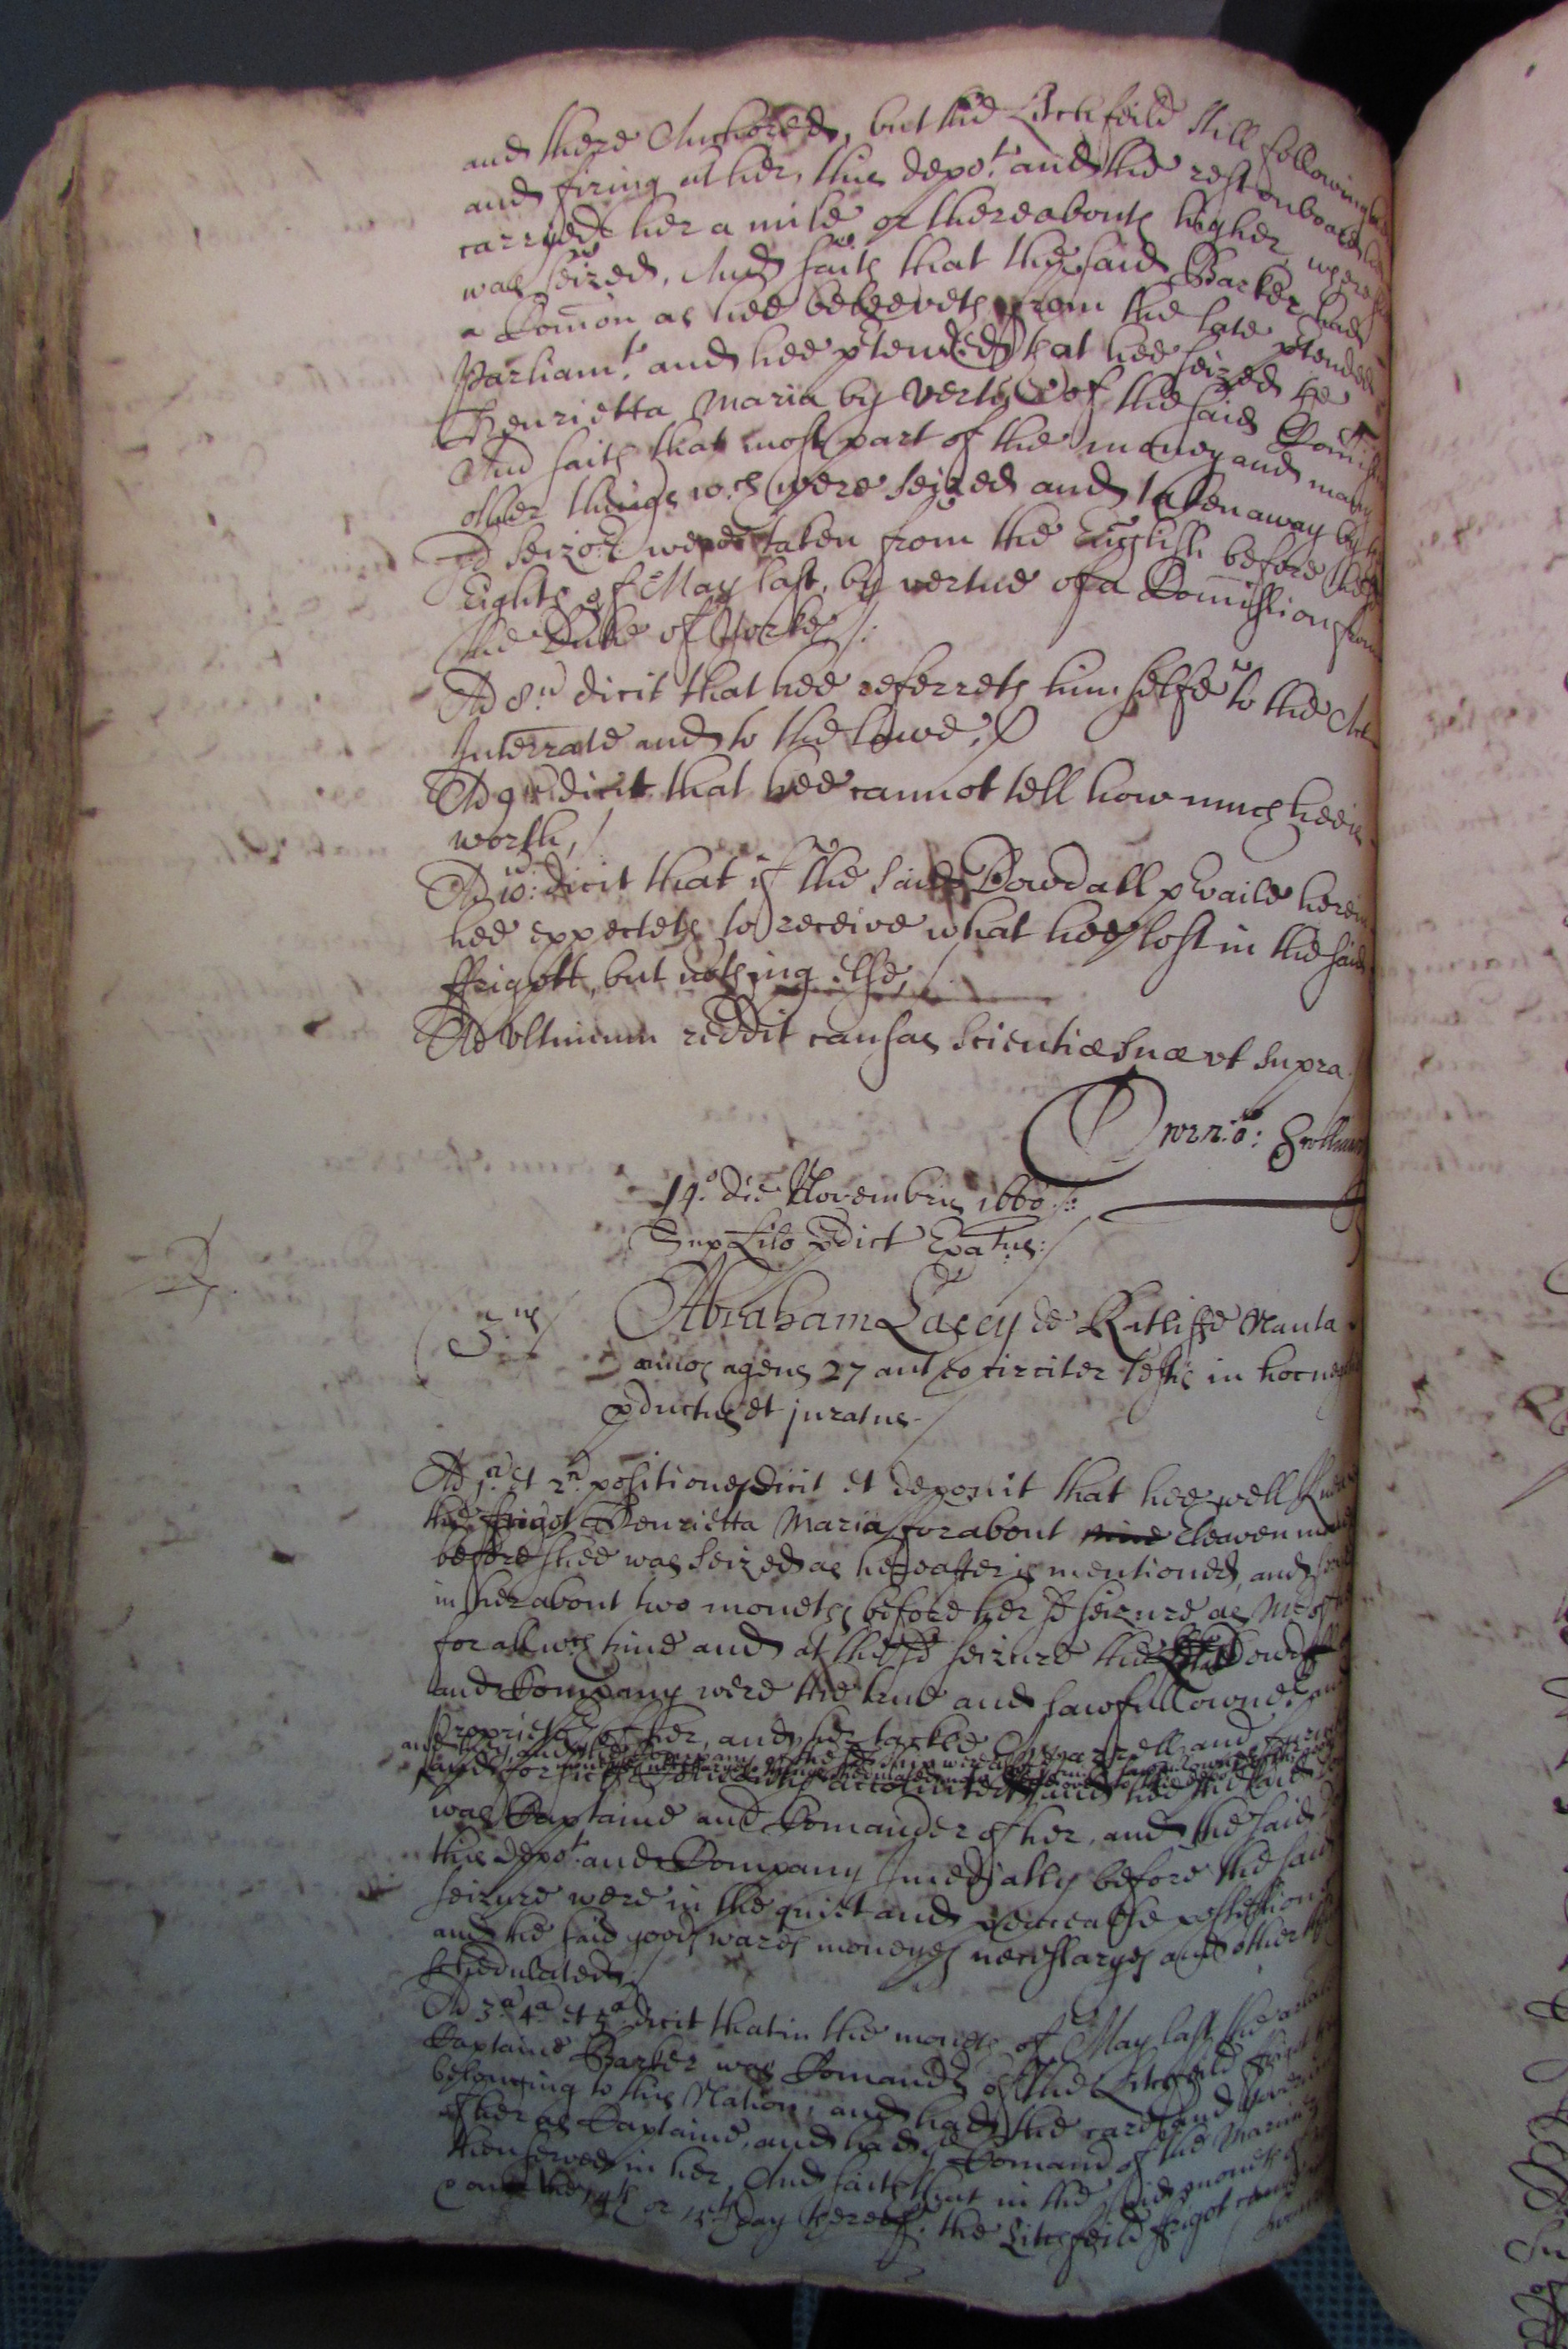 and there Anchored, but the Litchfeild still following her
and firing at her, this depo.t and the rest onboard her
carryed her a mile or thereabouts higher, where shee
was seized, And saith that the said Barker had
a Comon as hee beleeveth from the late ptended
Parliam.t and hee ptended that hee seized the
Henrietta Maria by vertue of the said Comission
And saith that most part of the money and many
other things w.ch were seized and taken away by the
sd seizors were taken from the English before the
Eighth of May last, by vertue of a Comission from
the Duke of Yorke /:
Ad 8.u dicit that hee referreth himselfe to the Act
Interrate and to the lawe,
Ad 9.u dicit that hee cannot tell how much hee is
worth, /
Ad 10: dicit that if the said Dowdall pvaile herein
hee expecteth to receive what hee lost in the said
ffrigott, but nothing else, /
Ad ultimum reddit causas scientiæ suæ ut supra
14.o die Novembris 1660 /:
Sup Lilo pdict Exatus: /
3.us / Abraham Lacey de Ratliffe Nauta
annos agens 27 aut eo circiter testis in hoc
pductus et juratus /
Ad 1.a et 2.a positiones dicit et deponit that hee well knew
the ffrigot Henrietta Maria for about nine Eleaven
before shee was seized as hereafter is mentioned, and
in her about two moneths before her sd seizure as
for all w.ch time and at the sd seizure the said
and Company were the true and lawfull owners and
Proprietors of her, and her tackle Apparrell and furniture
and the Company of the sd ship were
and for such accounted and the said
was Captaine and Comander of her, and the said
this depo.t and Company Imediatly before the said
seizure were in the quiet and peaceable possession
and the said goods wares moneyes necessaryes and other
schedulated, /
Ad 3.a 4.a et 5.a dicit that in the moneth of May last the arlate
Captaine Barker was Comander of the Litchfeild ffrigot
belonging to this Nation, and had the care and
of her as Captaine, and had ye Comand of the Mariners
then served in her, And saith that in the said moneth of
upon the 14th or 15th day thereof, the Litchfeild ffrigot